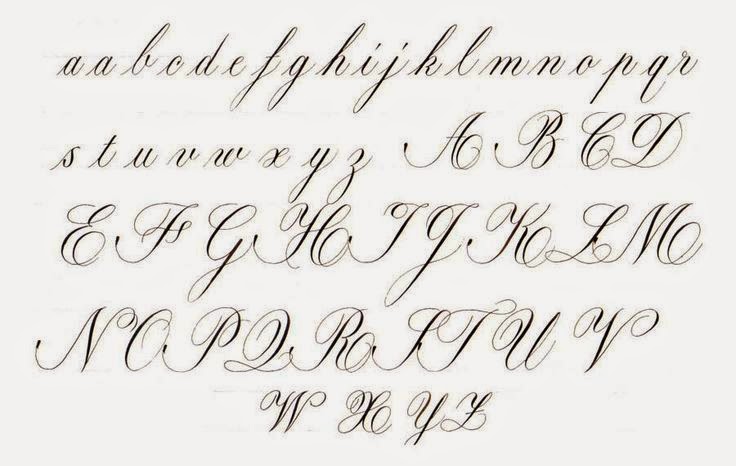 a a b c d e f g h i j k l m n o p q r
s t u v w x y z A B C D
E F G H I J K L M
N O P Q R S T U V
W X Y Z